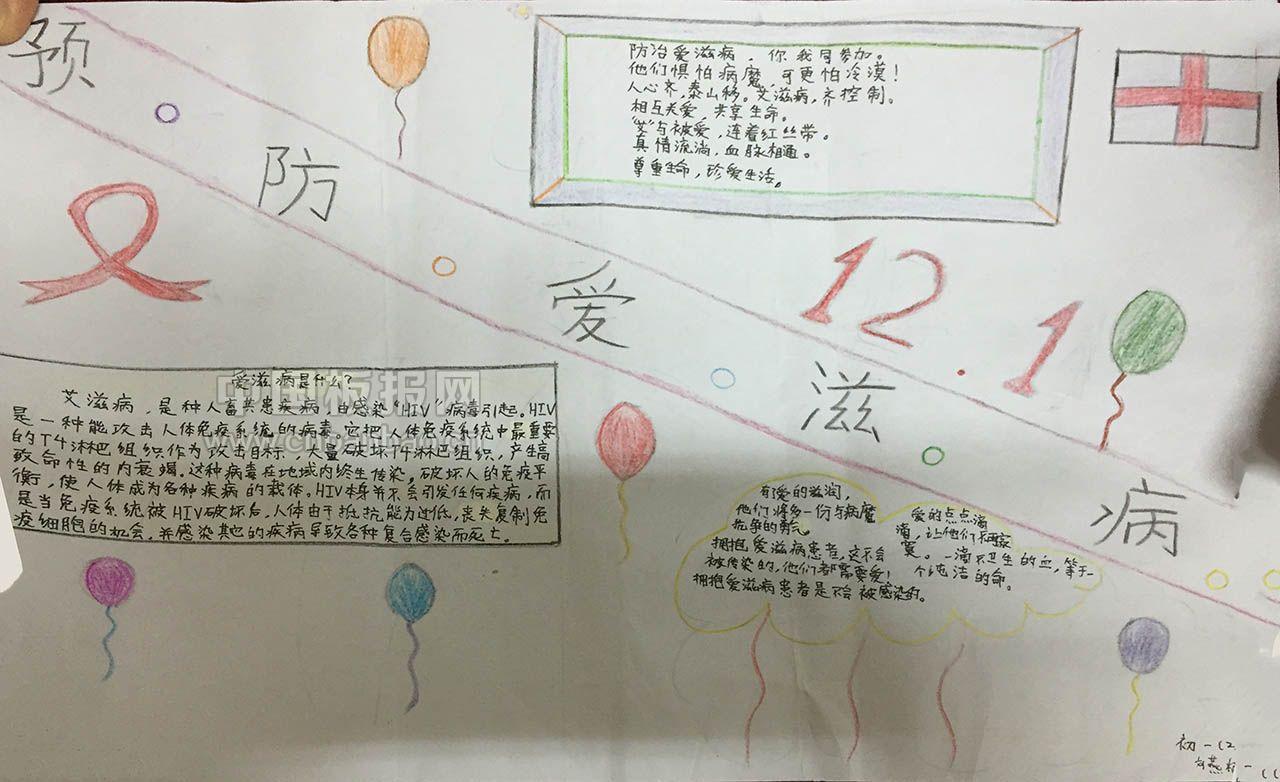 预防爱滋病
防治爱滋病，你我同参加。
他们惧怕病魔，可更怕冷漠！
人心齐，泰山移。艾滋病，齐控制。
相互关爱，共享生命。
"艾"与被爱，连着红丝带。
真情流淌，血脉相通。
尊重生命，珍爱生活。
12.1
爱滋病是什么？
艾滋病，是种人畜共患疾病，由感染"HIV"病毒引起。HIV
是一种能攻击人体免疫系统的病毒。它把人体免疫系统中最重要
的T4淋巴组织作为攻击目标，大量破坏T4淋巴组织，产生高
致命性的内衰竭。这种病毒在地域内终生传染，破坏人的免疫平
衡，使人体成为各种疾病的载体。HIV本身并不会引发任何疾病，而
是当免疫系统被HIV破坏后，人体由于抵抗能力过低，丧失复制免
疫细胞的机会，并感染其它的疾病导致各种复合感染而死亡。
中国板报网
有爱的滋润，
他们将多一份与病魔
抗争的勇气。
拥抱爱滋病患者，这不会
被传染的，他们都需要爱！
拥抱爱滋病患者是不会被感染的。
爱的点点滴
滴，让他们不再寂
寞。一滴不卫生的血，等于一
个纯洁的命。
初一12